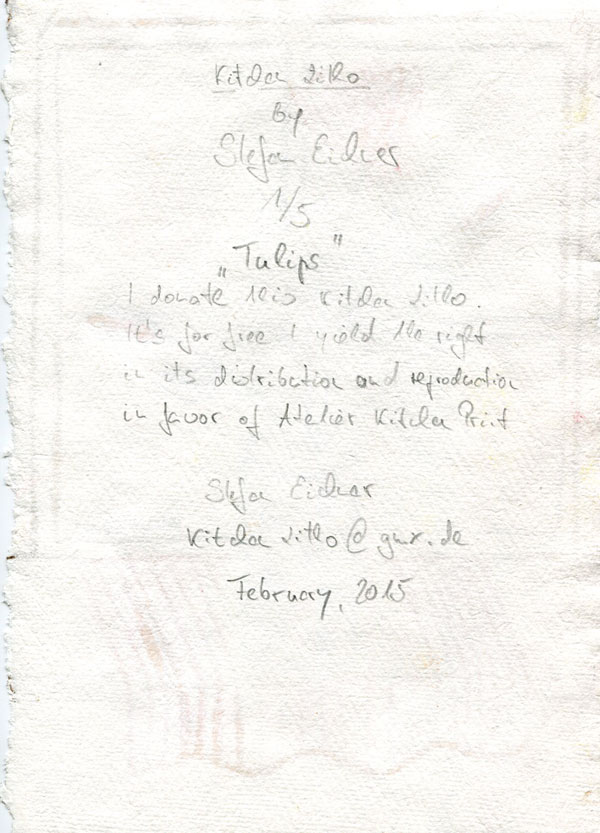 Kitchen Litho
By
Stefan Eichner
1/5
„Tulips"
I donate this Kitchen Litho.
It's for free I yield the right
in its distribution and reproduction
in favor of Atelier Kitchen Print
Stefan Eichner
Kitchen Litho@gmx.de
February, 2015